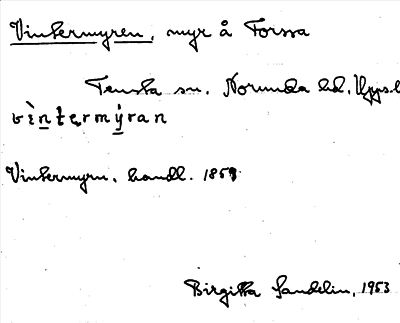 Vintermyren, myr å Forssa
Tensta sn. Norunda hd, Upps.l
vìntərmy̲ran
Vintermyrn, handl. 1859
Birgitta Sandelin, 1953